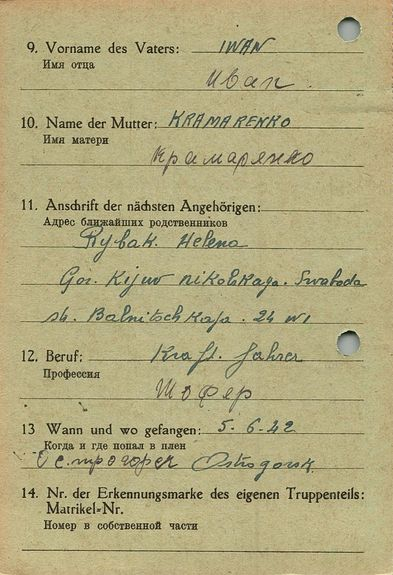 9. Vorname des Vaters: IWAN
Имя отца
Иван.
10. Name der Mutter: KRAMARENKO
Имя матери
Крамарянко
11. Anschrift der nächsten Angehörigen:
Адрес ближайших родственников
Rybak. Helena
Gor. Kijuw nikolskaga. Swaboda
st. Balnitschkaja. 24 W1
12. Beruf: Kraft. fahrer
Профессия
Шофер
13 Wann und wo gefangen: 5-6-42
Когда и где попал в плен
Острогорск Ostrogorsk.
14. Nr. der Erkennungsmarke des eigenen Truppenteils:
Matrikel-Nr.
Номер в собственной части